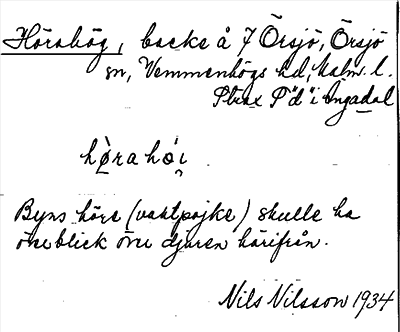 Hörahög, backe å 7 Örsjö, Örsjö
sn, Vemmenhögs hd, Malm. l.
Strax P "d" i Ingadal
hø̀ra hø̀i
Byns höre (vaktpojke) skulle ha
överblick över djuren härifrån.
Nils Nilsson 1934